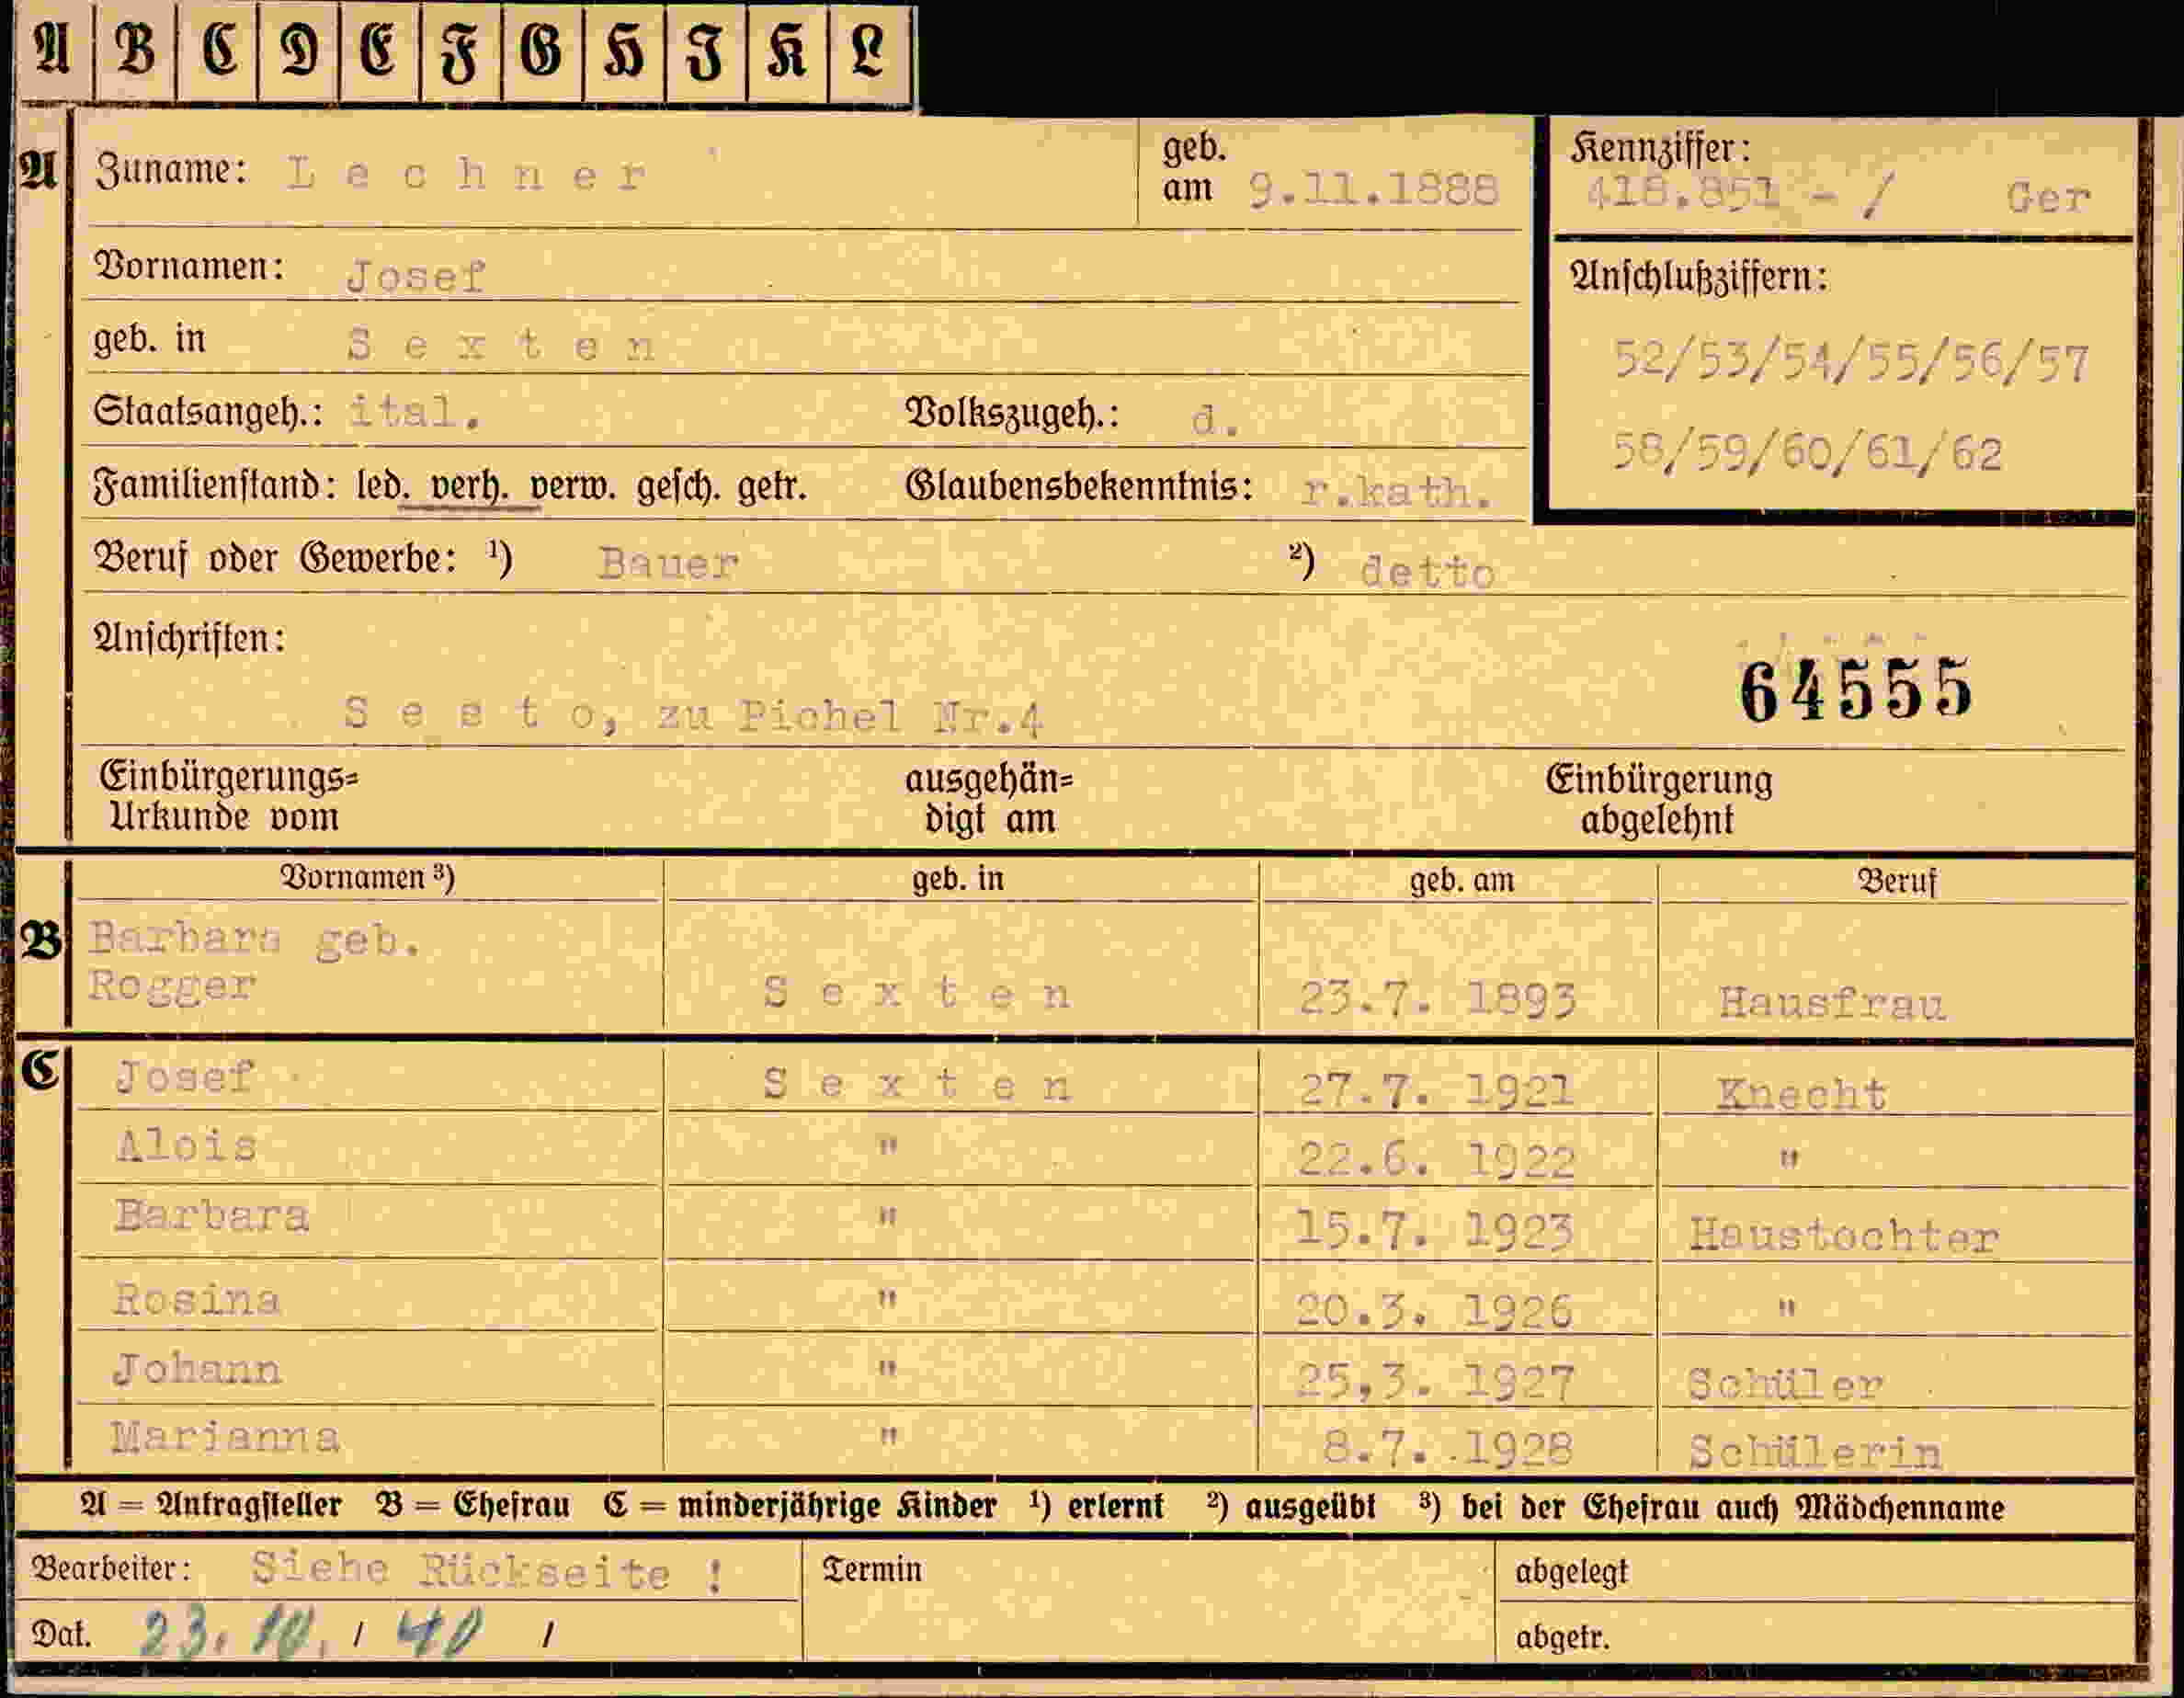 A B C D E F G H I K L
A Zuname: Lechner geb. am 9.11.1888 Kennziffer: 418.851 - / Ger
Vornamen: Josef
geb. in Sexten Anschlußziffern:
52/53/54/55/56/57
Staatsangeh.: ital. Volkszugeh.: d.
58/59/60/61/62
Familienstand: led. verh. verw. gesch. getr. Glaubensbekenntnis: r.kath.
Beruf oder Gewerbe: ¹) Bauer ²) detto
Anschriften:
64555
Sesto, zu Pichel Nr.4
Einbürgerungs= ausgehän= Einbürgerung
Urkunde vom digt am abgelehnt
Vornamen ³) geb. in geb. am Beruf
B Barbara geb.
Rogger Sexten 23.7. 1893 Hausfrau
C Josef Sexten 27.7. 1921 Knecht
Alois " 22.6. 1922 "
Barbara " 15.7. 1923 Haustochter
Rosina " 20.3. 1926 "
Johann " 25,3. 1927 Schüler
Marianna " 8.7. 1928 Schülerin
A = Antragsteller B = Ehefrau C = minderjährige Kinder ¹) erlernt ²) ausgeübt ³) bei der Ehefrau auch Mädchenname
Bearbeiter: Siehe Rückseite ! Termin abgelegt
Dat. 23. 10. / 40 / abgetr.